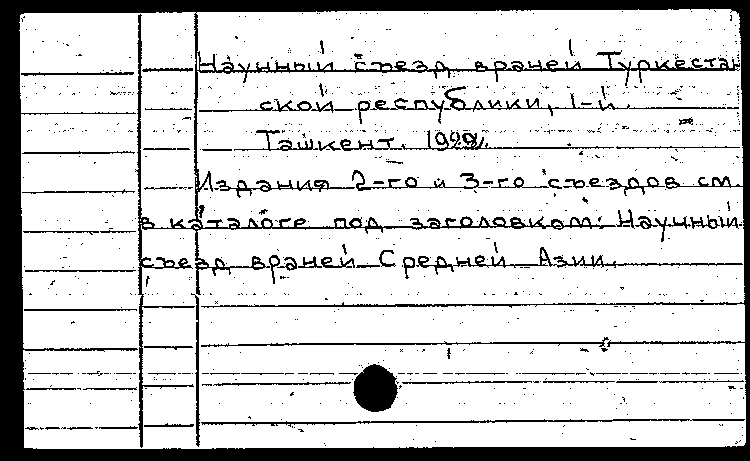 Научный съезд врачей Туркестан
ской республики, 1-й.
Ташкент.
Издания 2-го и 3-го съездов см.
в каталоге под заголовком: Научный
съезд врачей Средней Азии.